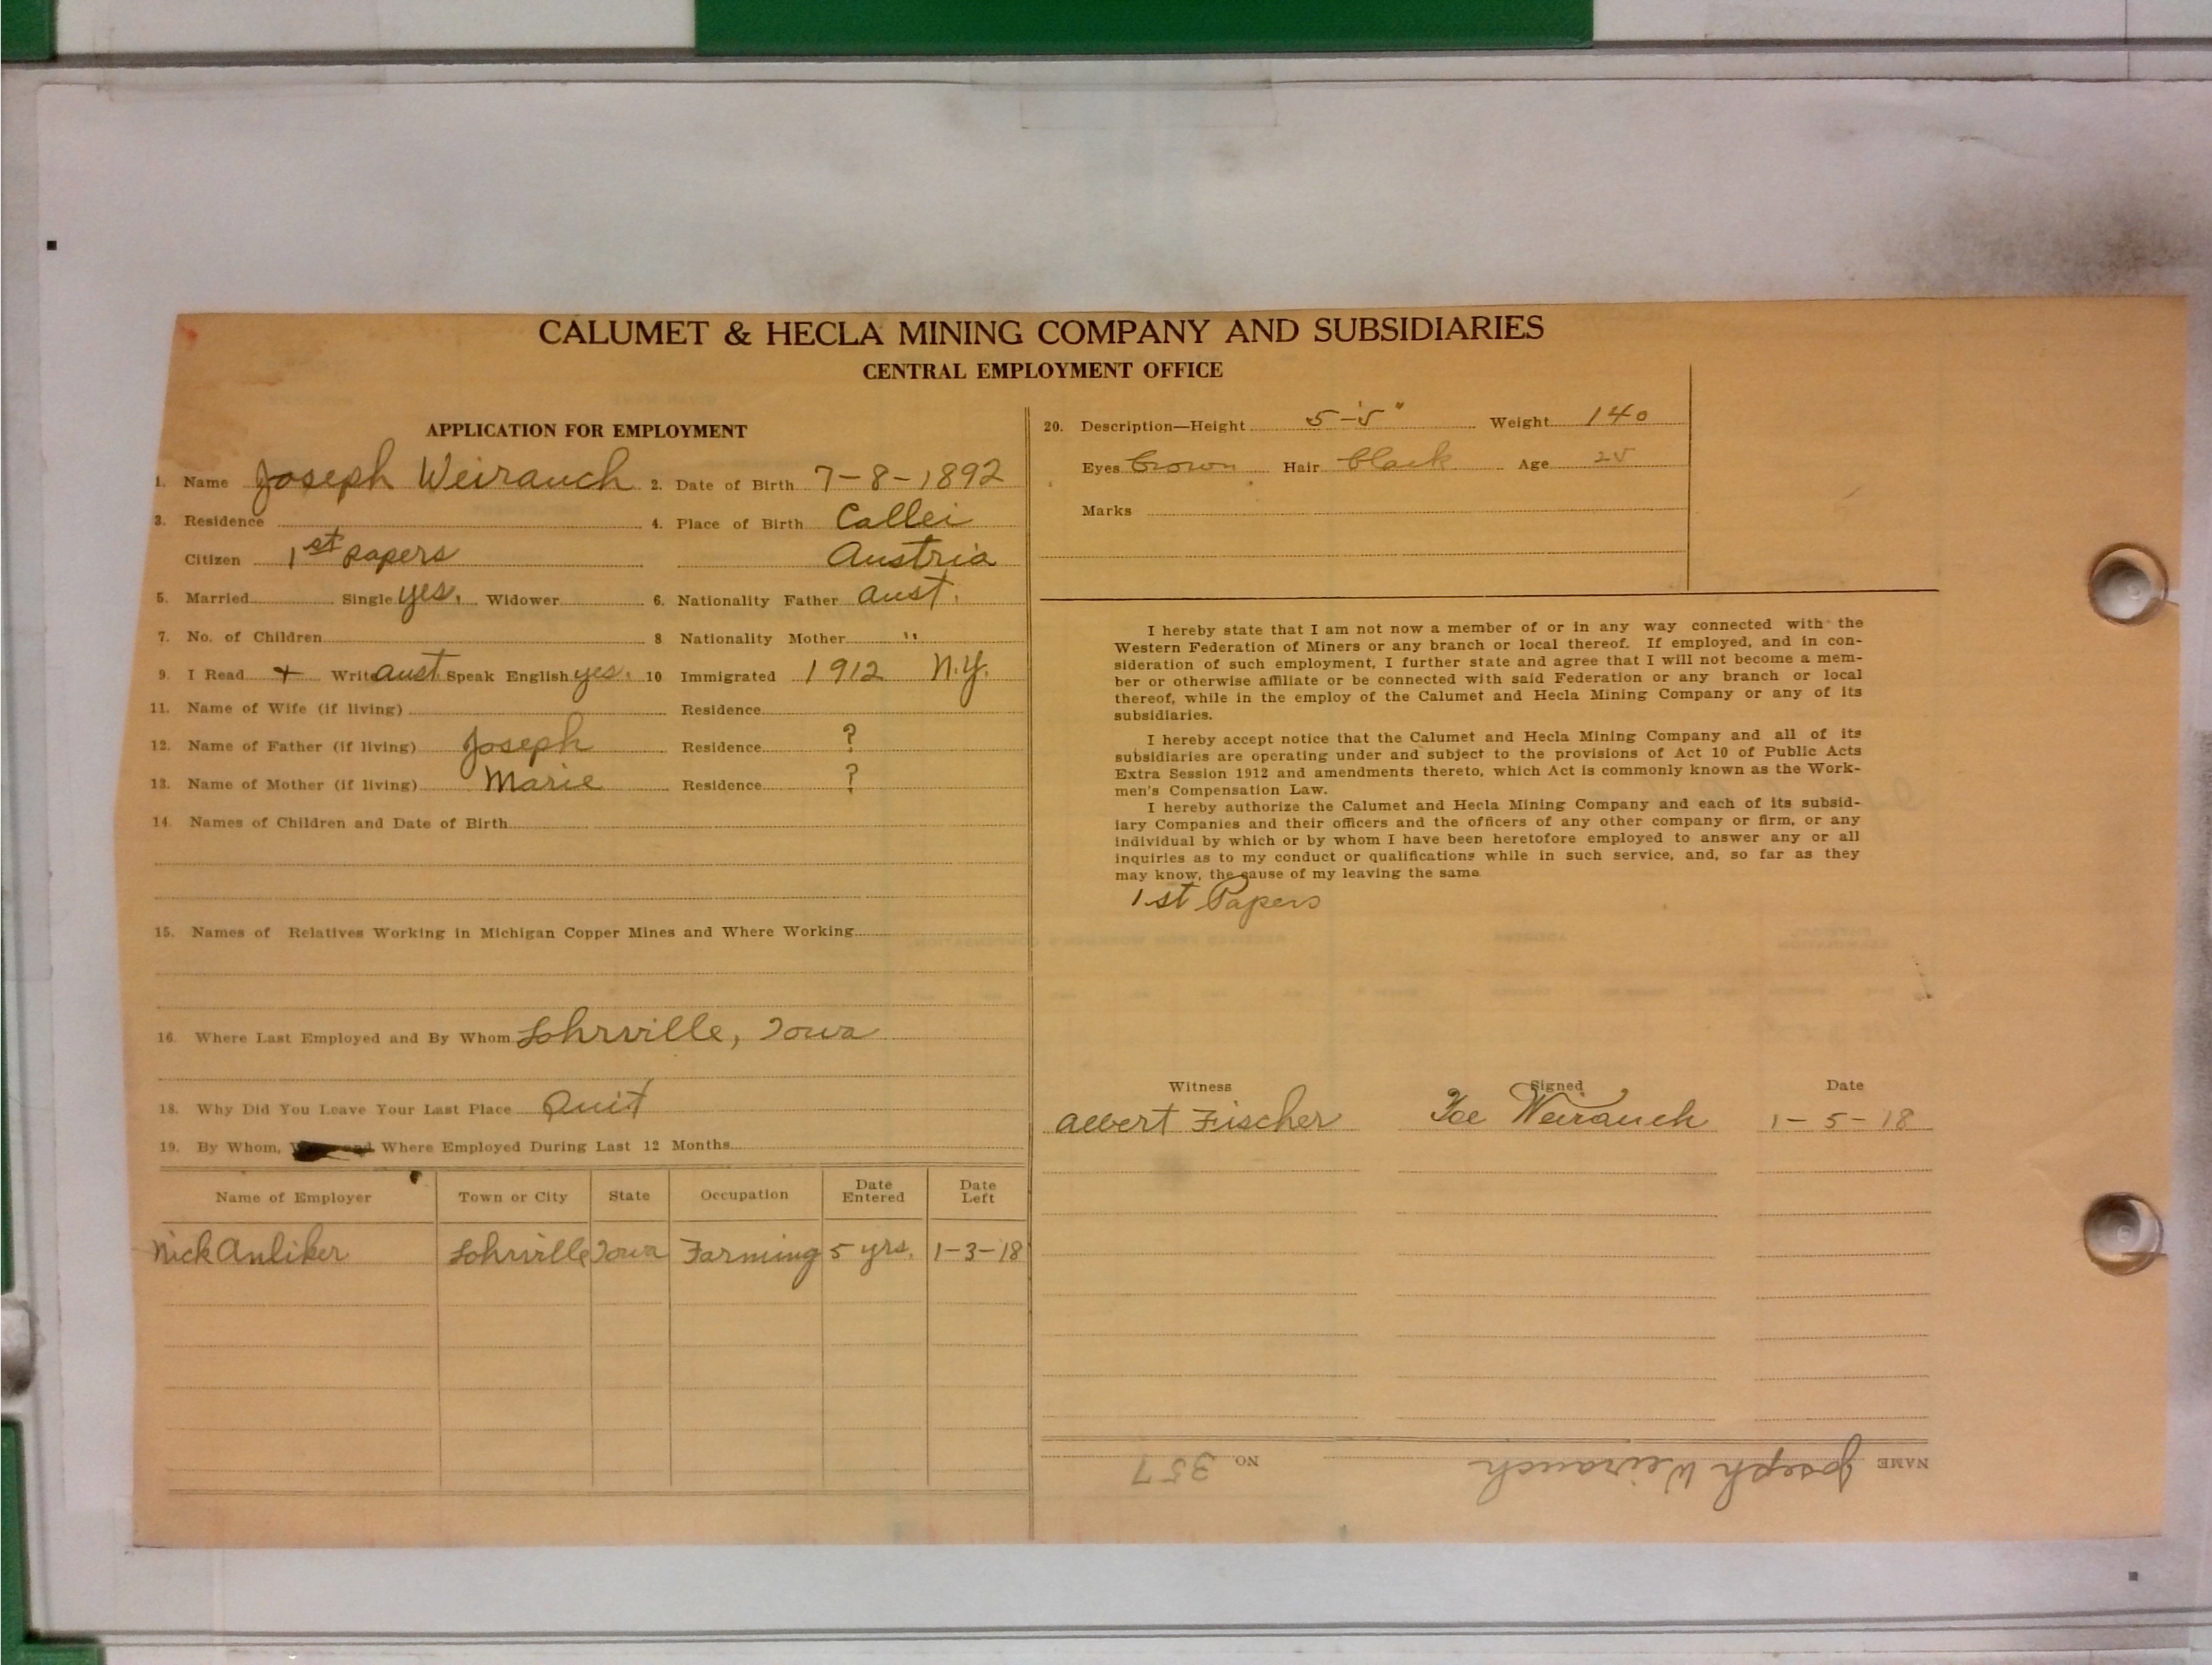 CALUMET & HECLA MINING COMPANY AND SUBSIDIARIES
CENTRAL EMPLOYMENT OFFICE
APPLICATION FOR EMPLOYMENT
1. Name Joseph Weirauch 2. Date of Birth 7-8-1892
3. Residence 4. Place of Birth Callei
Citizen 1st papers Austria
5. Married Single yes. Widower 6. Nationality Father Aust.
7. No. of Children 8 Nationality Mother "
9. I Read + Write Aust. Speak English yes. 10 Immigrated 1912 N.Y.
11. Name of Wife (if living) Residence
12. Name of Father (if living) Joseph Residence ?
13. Name of Mother (if living) Marie Residence ?
14. Names of Children and Date of Birth
15. Names of Relatives Working in Michigan Copper Mines and Where Working
16. Where Last Employed and By Whom Lohrville, Iowa
18. Why Did You Leave Your Last Place Quit
19. By Whom, Where Employed During Last 12 Months
Name of Employer Town or City State Occupation Date Entered Date Left
Nick Anliker Lohrville Iowa Farming 5 yrs. 1-3-18
20. Description—Height 5-'5" Weight 140
Eyes brown Hair black Age 25
Marks
I hereby state that I am not now a member of or in any way connected with the
Western Federation of Miners or any branch or local thereof. If employed, and in con-
sideration of such employment, I further state and agree that I will not become a mem-
ber or otherwise affiliate or be connected with said Federation or any branch or local
thereof, while in the employ of the Calumet and Hecla Mining Company or any of its
subsidiaries.
I hereby accept notice that the Calumet and Hecla Mining Company and all of its
subsidiaries are operating under and subject to the provisions of Act 10 of Public Acts
Extra Session 1912 and amendments thereto, which Act is commonly known as the Work-
men's Compensation Law.
I hereby authorize the Calumet and Hecla Mining Company and each of its subsid-
iary Companies and their officers and the officers of any other company or firm, or any
individual by which or by whom I have been heretofore employed to answer any or all
inquiries as to my conduct or qualifications while in such service, and, so far as they
may know, the cause of my leaving the same
1st Papers
Witness Signed Date
Albert Fischer Joe Weirauch 1-5-18
NAME Joseph Weirauch NO. 357